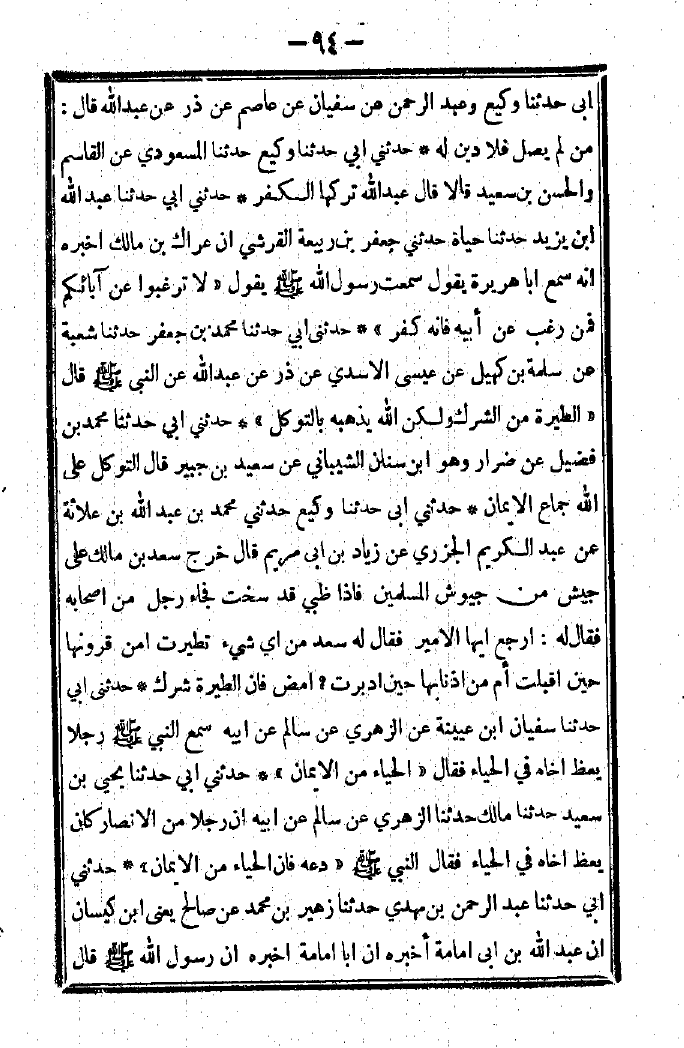 — ٩٤ —
ابى حدثنا وكيع وعبد الرحمن عن سفيان عن عاصم عن ذر عن عبدالله قال :
من لم يصل فلا دين له * حدثني ابي حدثنا وكيع حدثنا المسعودي عن القاسم
والحسن بن سعيد قالا قال عبدالله تركها الكفر * حدثني ابي حدثنا عبد الله
ابن يزيد حدثنا حياة حدثني جعفر بن ربيعة القرشي ان عراك بن مالك اخبره
انه سمع ابا هريرة يقول سمعت رسول الله ﷺ يقول « لا ترغبوا عن آبائكم
فمن رغب عن أبيه فانه كفر » * حدثني ابي حدثنا محمد بن جعفر حدثنا شعبة
عن سلمة بن كهيل عن عيسى الاسدي عن ذر عن عبدالله عن النبي ﷺ قال
« الطيرة من الشرك ولكن الله يذهبه بالتوكل » * حدثني ابي حدثنا محمد بن
فضيل عن ضرار وهو ابن سنان الشيباني عن سعيد بن جبير قال التوكل على
الله جماع الايمان * حدثني ابى حدثنا وكيع حدثني محمد بن عبد الله بن علاثة
عن عبد الكريم الجزري عن زياد بن ابى مريم قال خرج سعد بن مالك على
جيش من جيوش المسلمين فاذا ظبي قد سخت فجاء رجل من اصحابه
فقال له : ارجع ايها الامير فقال له سعد من اي شيء تطيرت امن قرونها
حين اقبلت أم من اذنابها حين ادبرت ? امض فان الطيرة شرك * حدثنى ابي
حدثنا سفيان ابن عيينة عن الزهري عن سالم عن ابيه سمع النبي ﷺ رجلا
يعظ اخاه في الحياء فقال « الحياء من الايمان » * حدثني ابي حدثنا يحيى بن
سعيد حدثنا مالك حدثنا الزهري عن سالم عن ابيه ان رجلا من الانصار كان
يعظ اخاه في الحياء فقال النبي ﷺ « دعه فان الحياء من الايمان» * حدثني
ابي حدثنا عبد الرحمن بن مهدي حدثنا زهير بن محمد عن صالح يعنى ابن كيسان
ان عبد الله بن ابى امامة أخبره ان ابا امامة اخبره ان رسول الله ﷺ قال